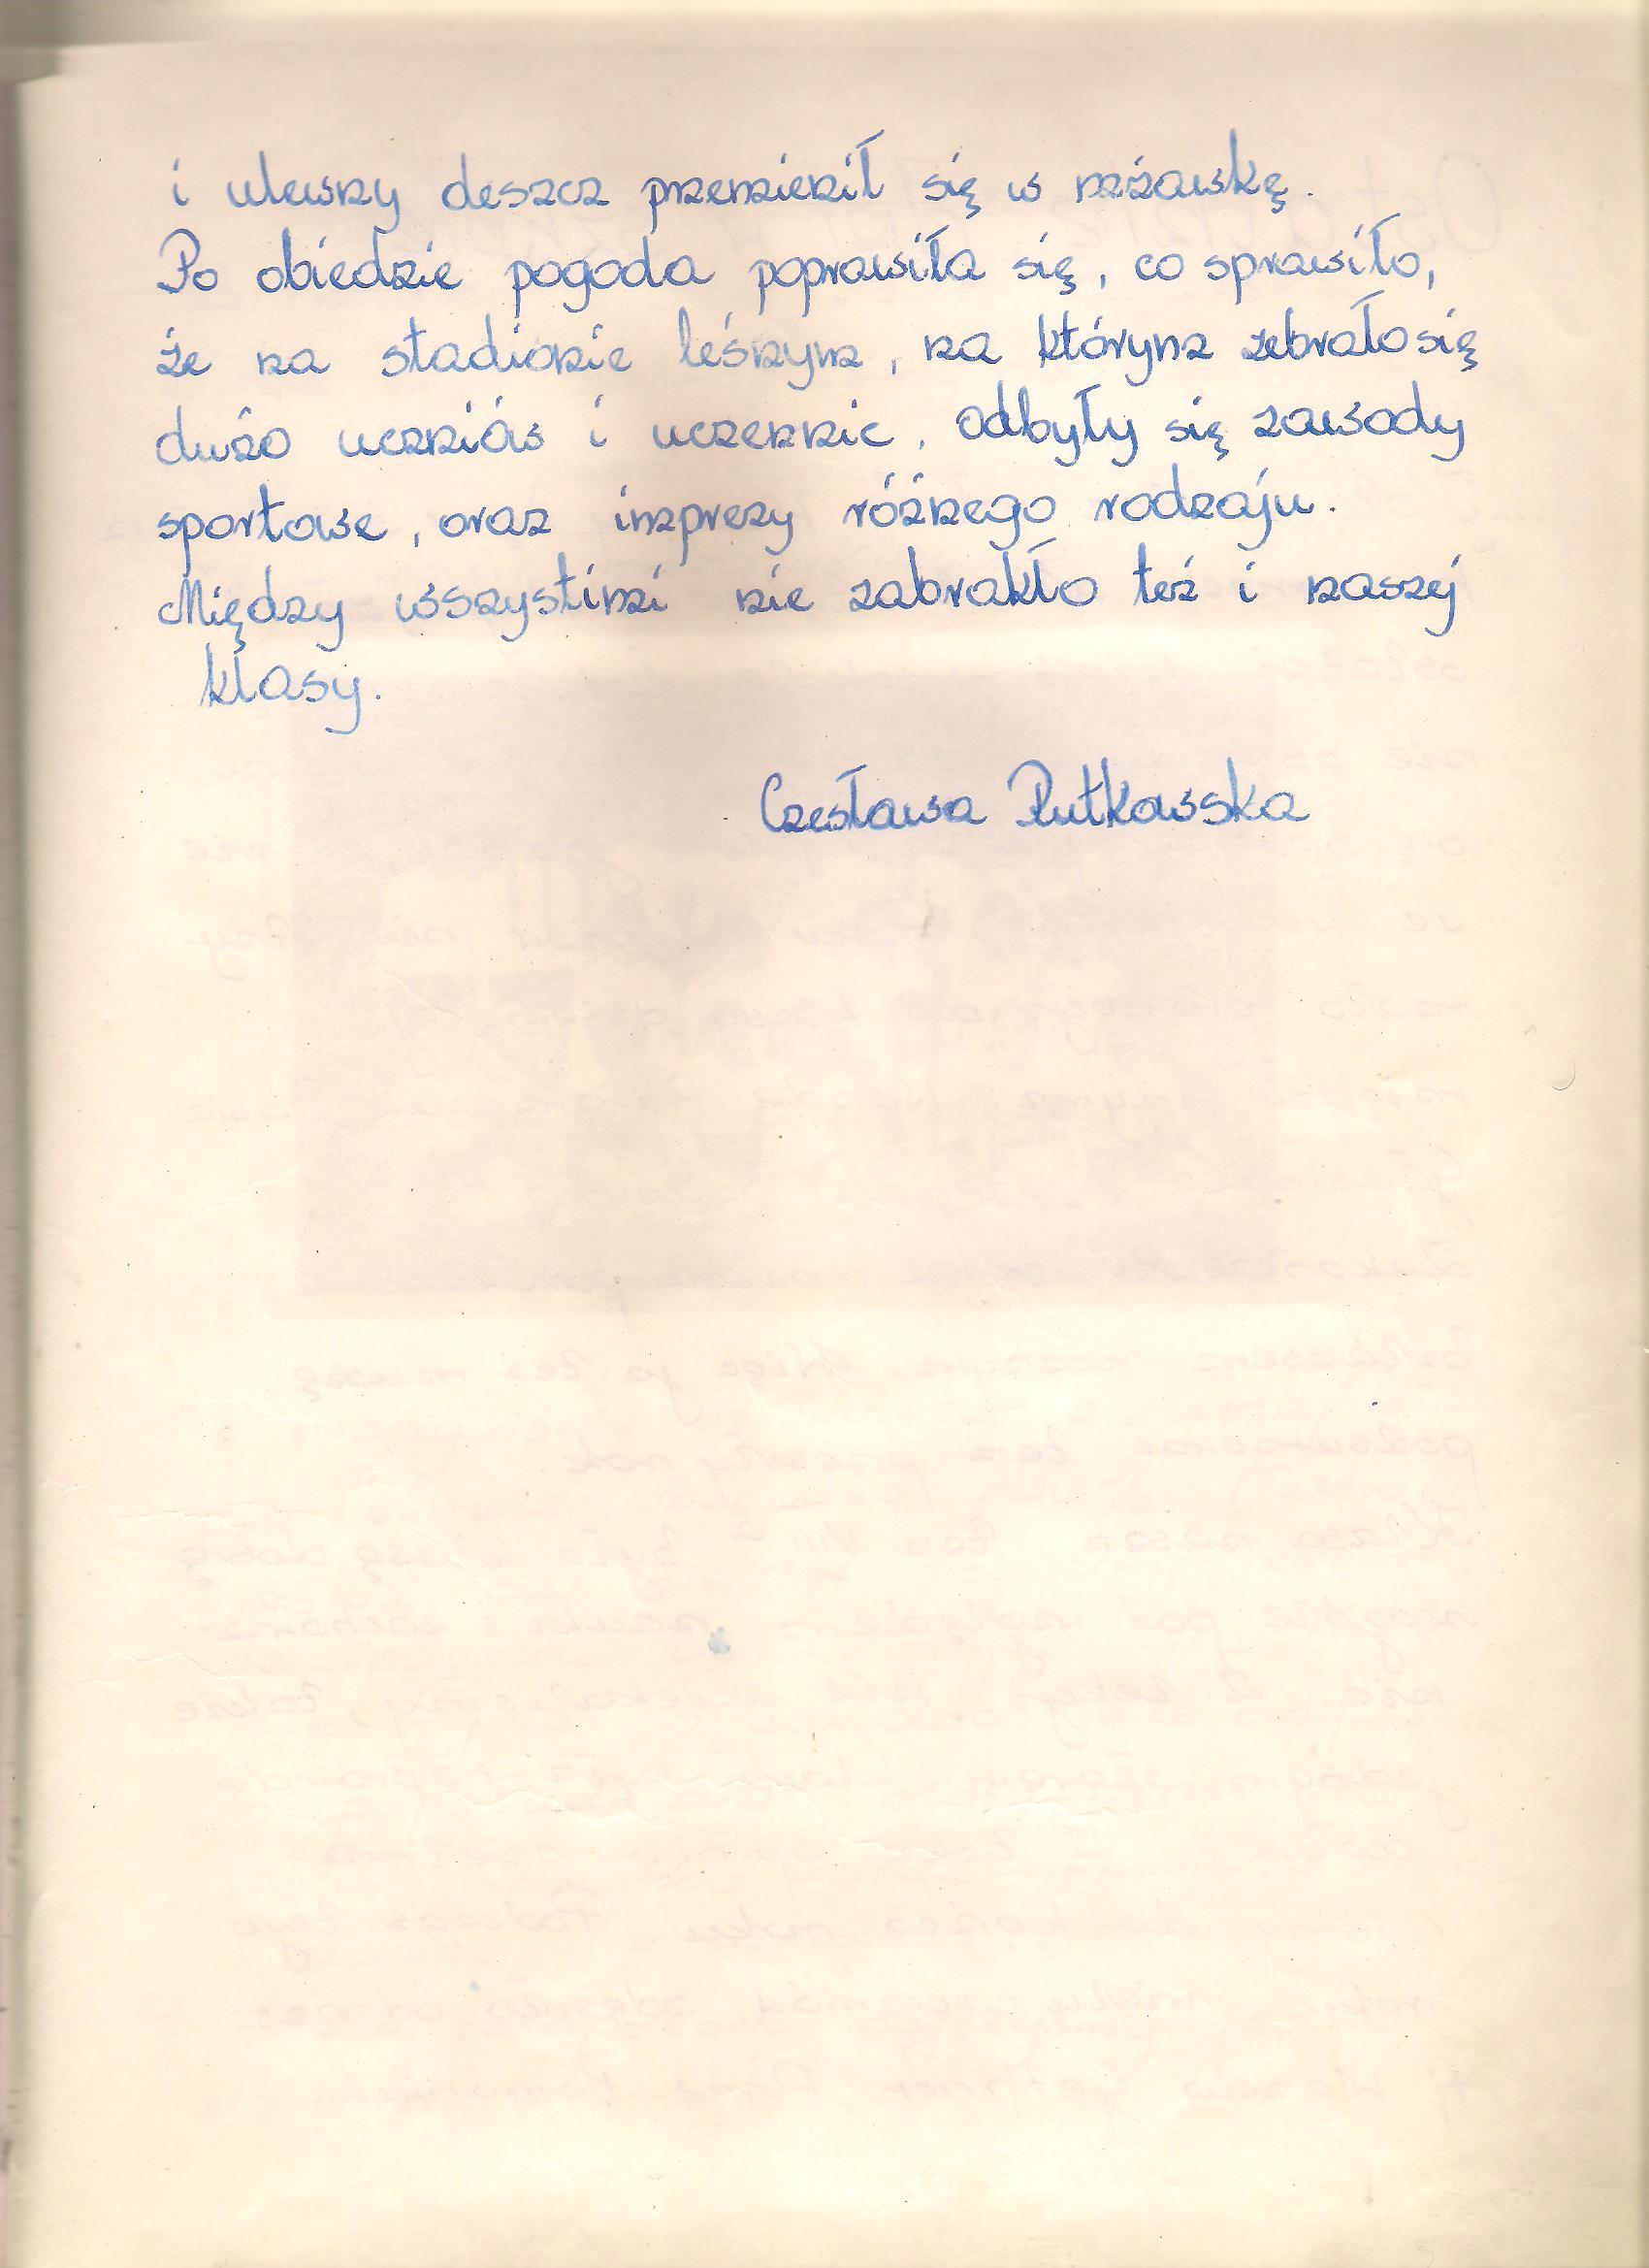 i ulewny deszcz przemienił się w mżawkę.
Po obiedzie pogoda poprawiła się, co sprawiło,
że na stadionie leśnym, na którym zebrało się
dużo uczniów i uczennic, odbyły się zawody
sportowe, oraz imprezy różnego rodzaju.
Między wszystimi nie zabrakło też i naszej
klasy.
Czesława Rutkowska